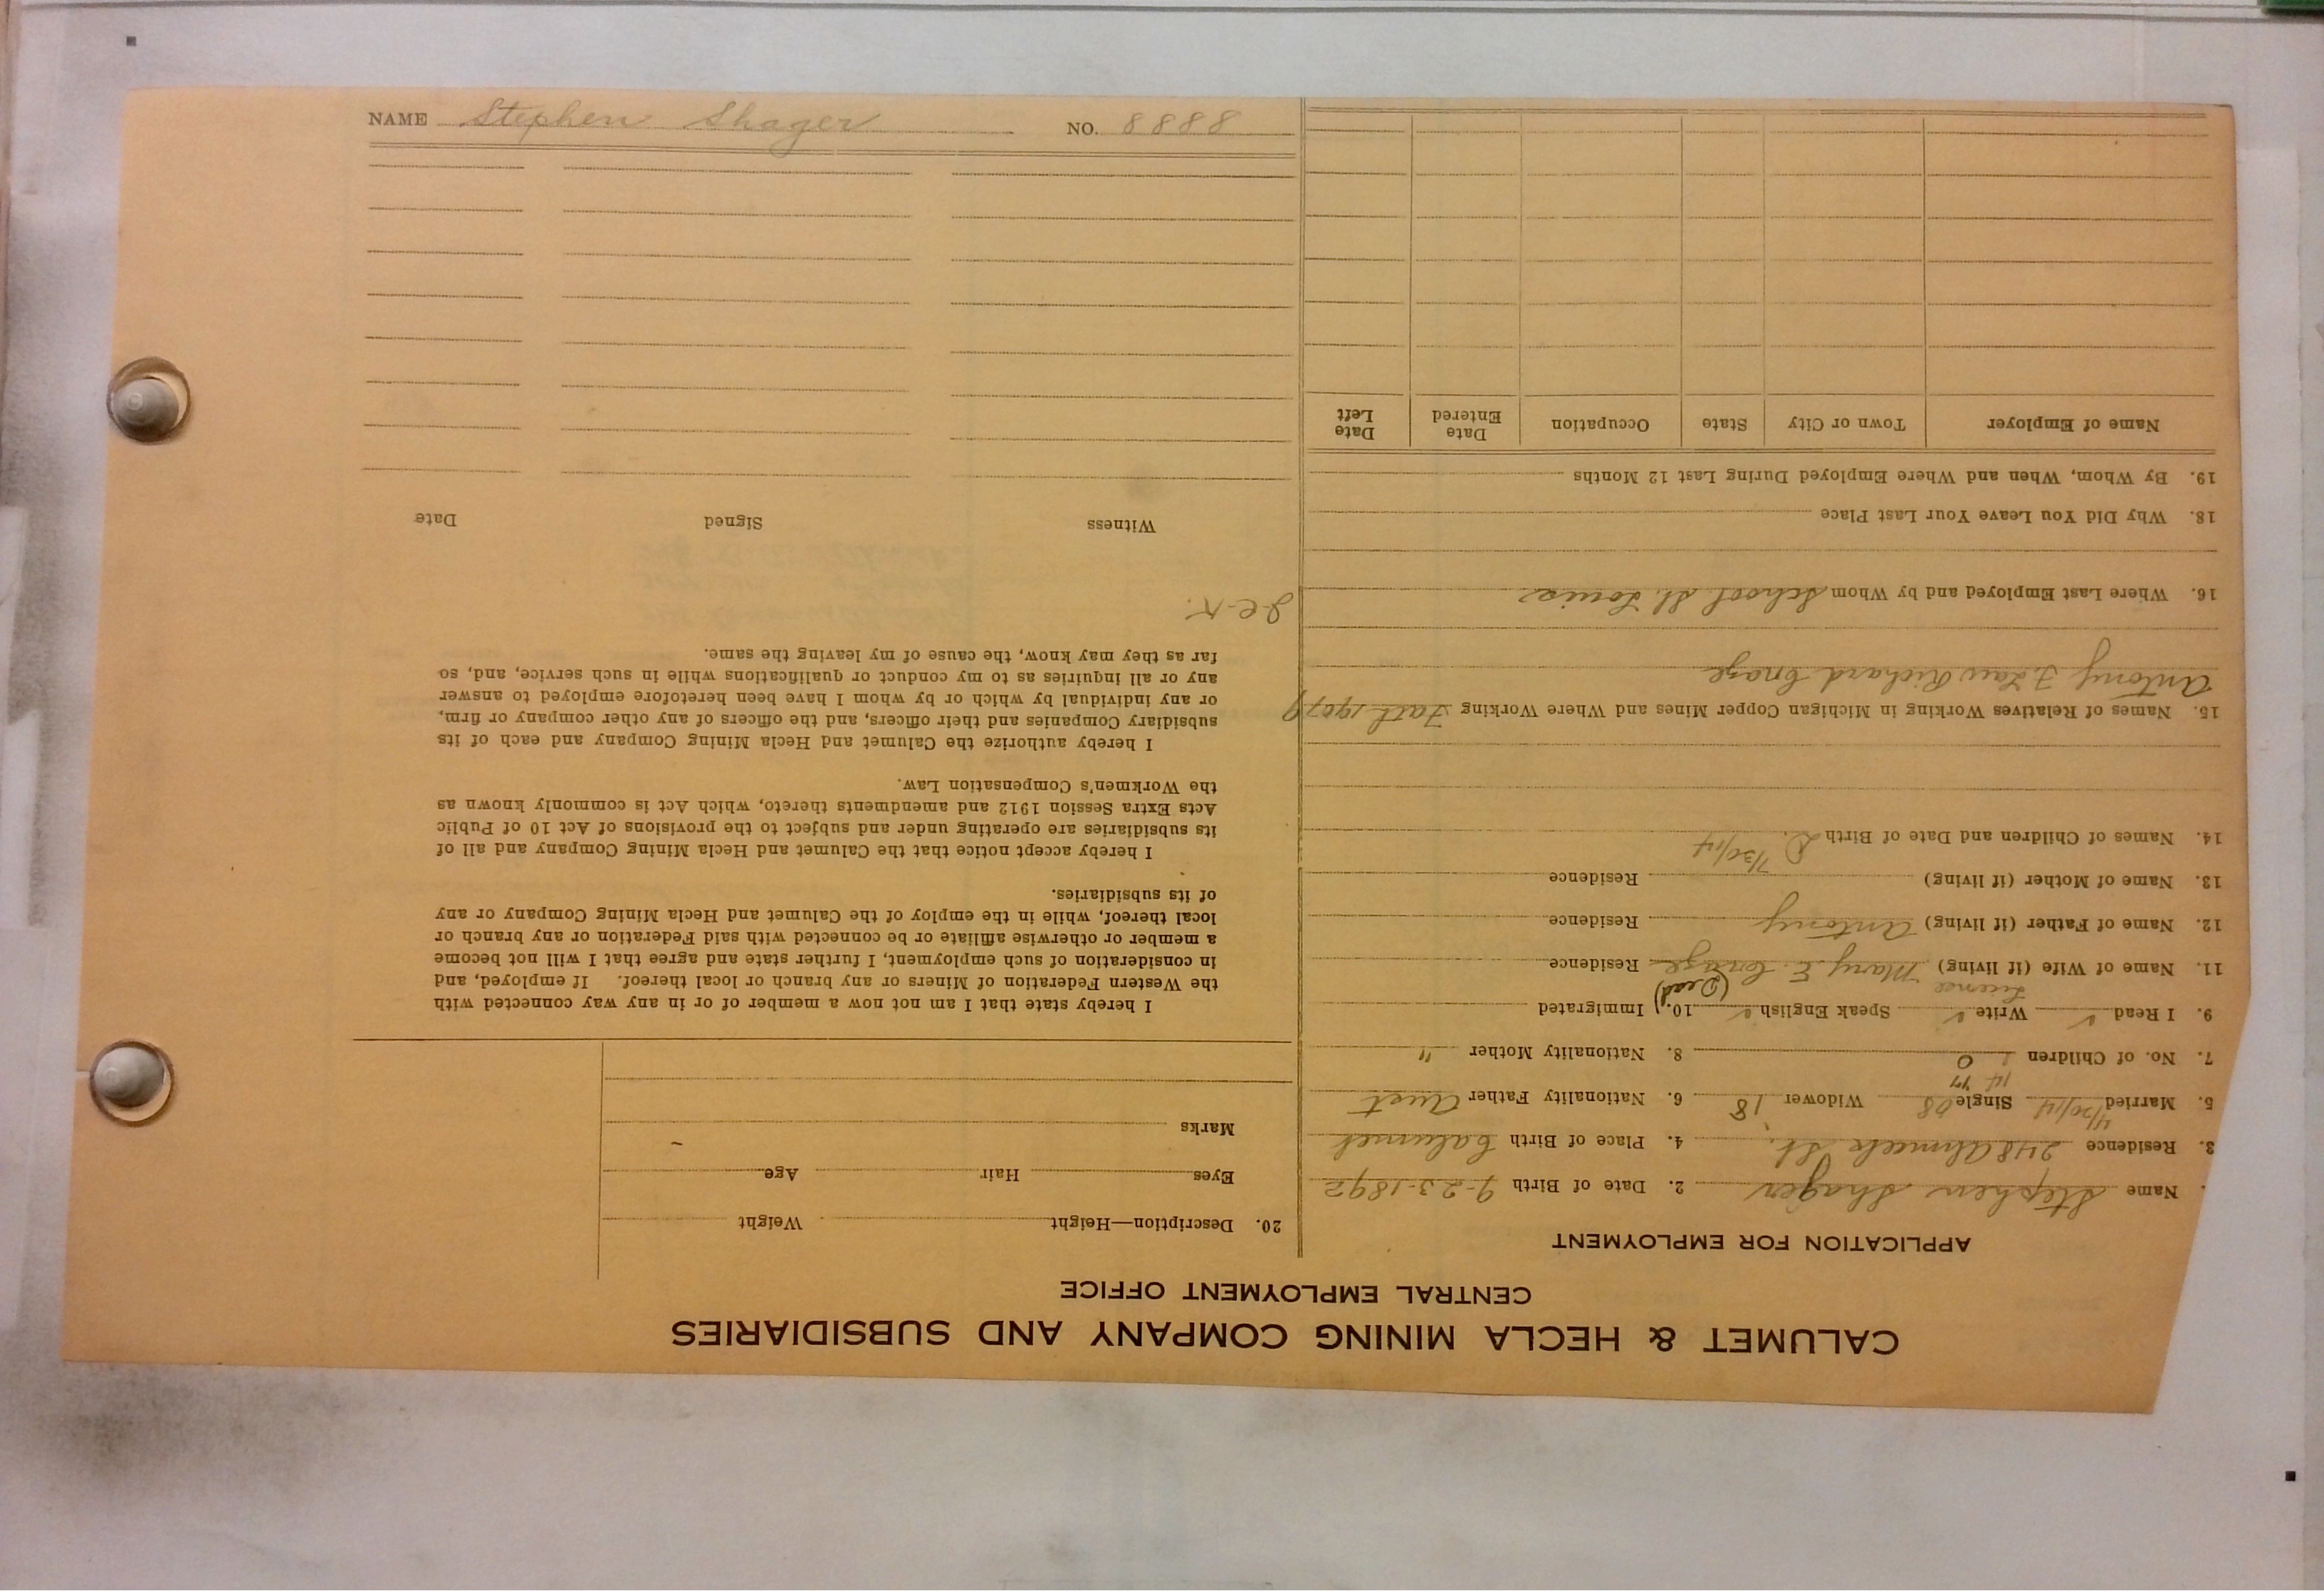 CALUMET & HECLA MINING COMPANY AND SUBSIDIARIES
CENTRAL EMPLOYMENT OFFICE
APPLICATION FOR EMPLOYMENT
Name Stephen Shager 2. Date of Birth 9-23-1892
3. Residence 248 Ahmeek St. 4. Place of Birth Calumet
5. Married 4/30/14 Single 08 Widower 18 6. Nationality Father Aust
14
7. No. of Children 0 8. Nationality Mother "
9. I Read ✓ Write ✓ Speak English ✓ 10. Immigrated
License (Dead)
11. Name of Wife (if living) Mary E. Residence
12. Name of Father (if living) Antony Residence
13. Name of Mother (if living) Residence
7/30/14
14. Names of Children and Date of Birth D.
15. Names of Relatives Working in Michigan Copper Mines and Where Working Fath 19079
Antony F. Law Richard
16. Where Last Employed and by Whom School St. Louis
18. Why Did You Leave Your Last Place
19. By Whom, When and Where Employed During Last 12 Months
Name of Employer Town or City State Occupation Date Entered Date Left
20. Description—Height Weight
Eyes Hair Age
Marks
I hereby state that I am not now a member of or in any way connected with
the Western Federation of Miners or any branch or local thereof. If employed, and
in consideration of such employment, I further state and agree that I will not become
a member or otherwise affiliate or be connected with said Federation or any branch or
local thereof, while in the employ of the Calumet and Hecla Mining Company or any
of its subsidiaries.
I hereby accept notice that the Calumet and Hecla Mining Company and all of
its subsidiaries are operating under and subject to the provisions of Act 10 of Public
Acts Extra Session 1912 and amendments thereto, which Act is commonly known as
the Workmen's Compensation Law.
I hereby authorize the Calumet and Hecla Mining Company and each of its
subsidiary Companies and their officers, and the officers of any other company or firm,
or any individual by which or by whom I have been heretofore employed to answer
any or all inquiries as to my conduct or qualifications while in such service, and, so
far as they may know, the cause of my leaving the same.
Witness Signed Date
NAME Stephen Shager NO. 8888